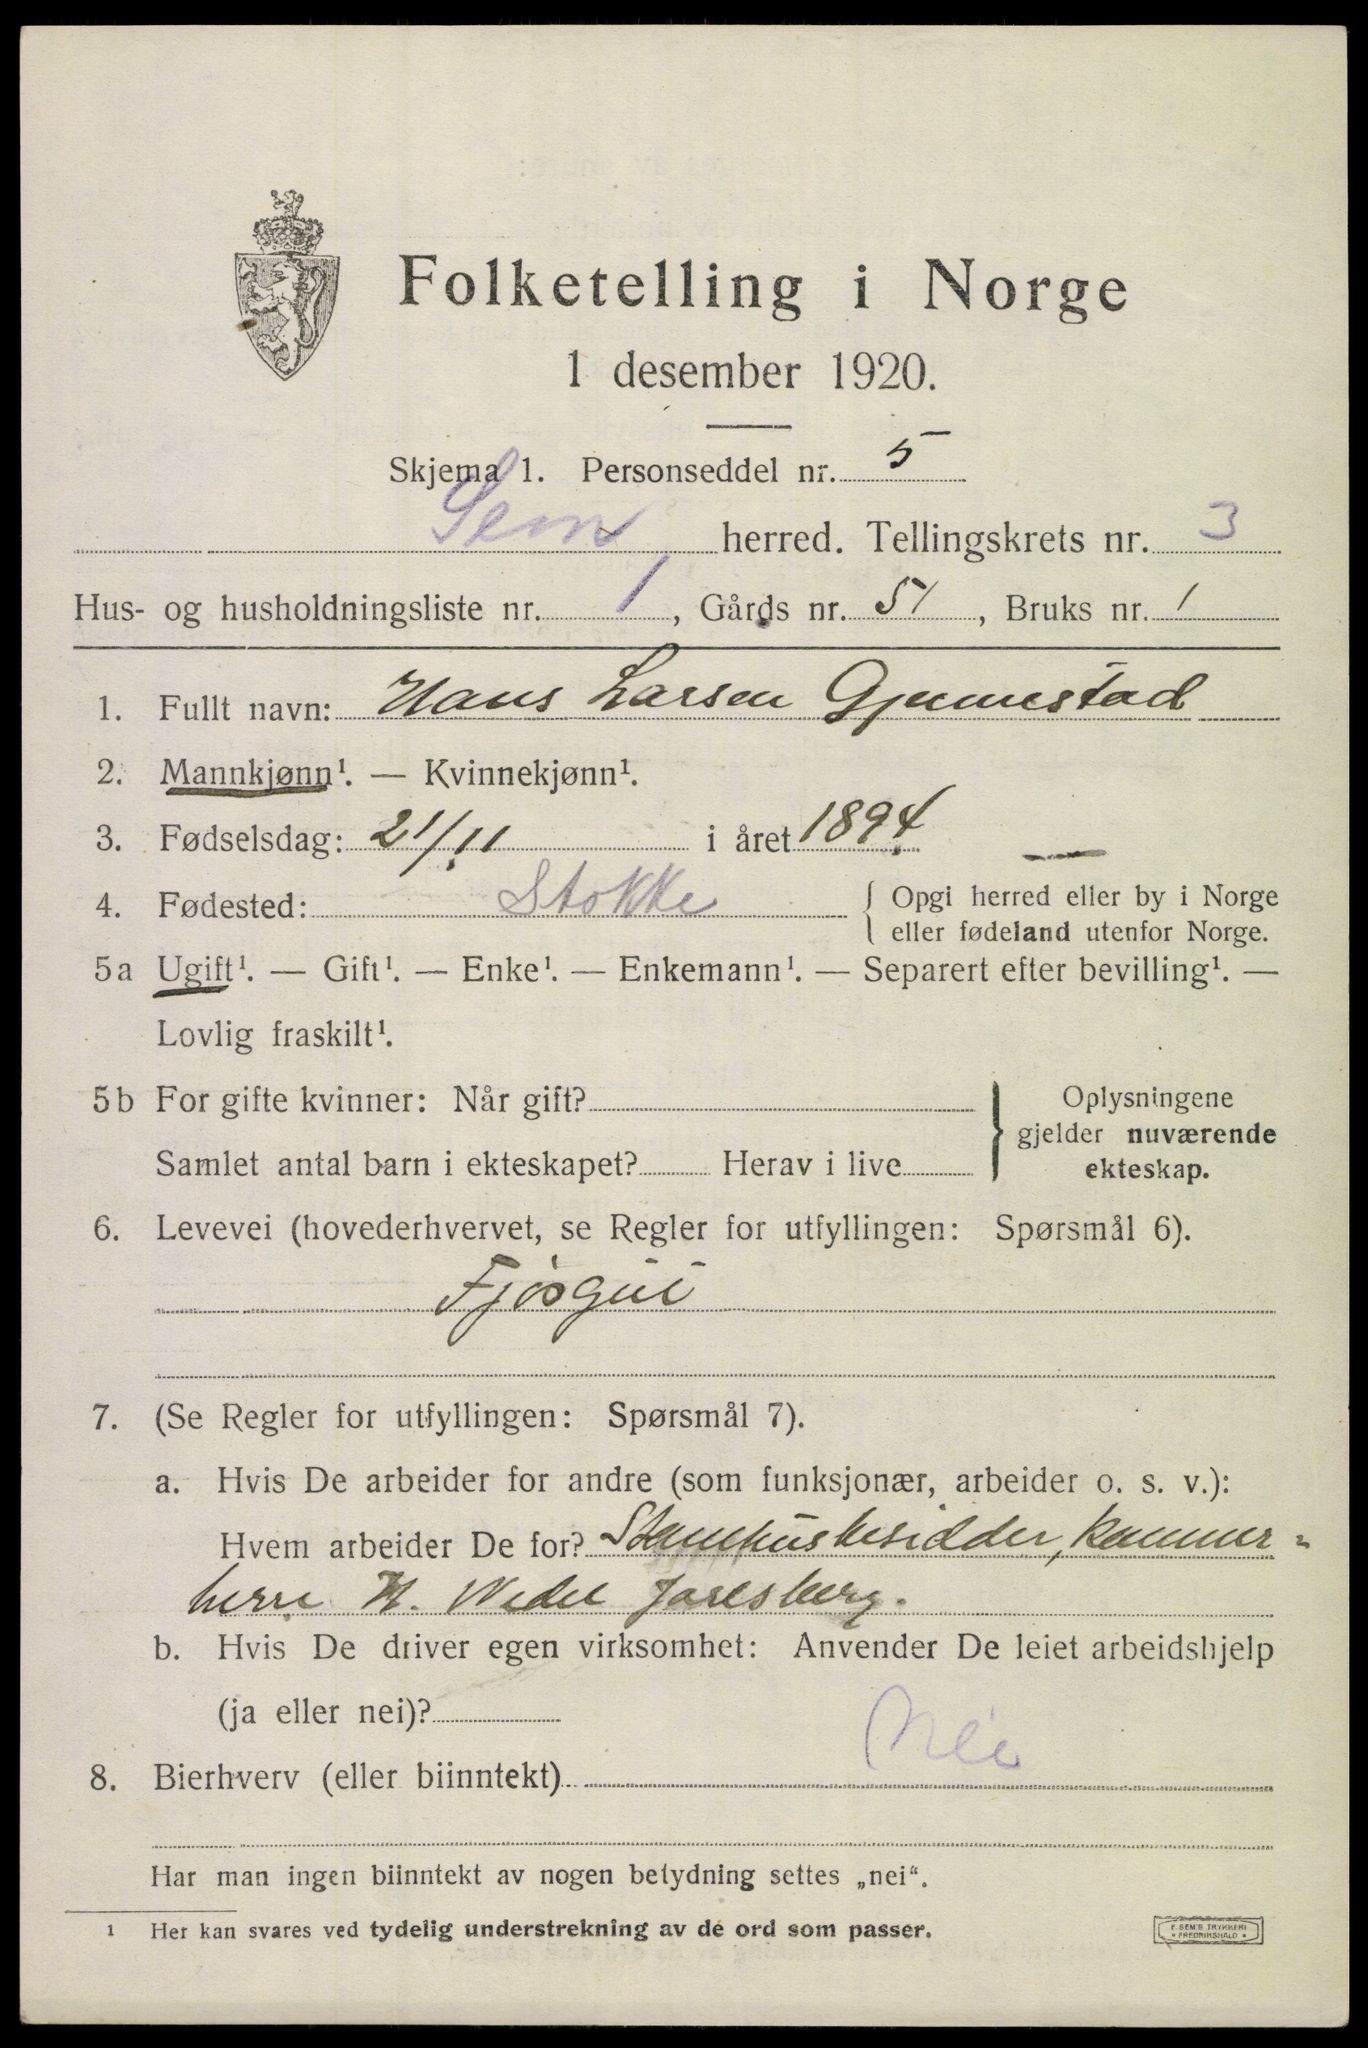 Folketelling i Norge
1 desember 1920.
Skjema 1. Personseddel nr. 5
Sem herred. Tellingskrets nr. 3
Hus- og husholdningsliste nr. 1, Gårds nr. 51, Bruks nr. 1
1. Fullt navn: Hans Larsen Gjennestad
2. Mannkjønn¹. — Kvinnekjønn¹.
3. Fødselsdag: 21/11 i året 1894
4. Fødested: Stokke { Opgi herred eller by i Norge
eller fødeland utenfor Norge.
5a Ugift¹. — Gift¹. — Enke¹. — Enkemann¹. — Separert efter bevilling¹. —
Lovlig fraskilt¹.
5b For gifte kvinner: Når gift?
Samlet antal barn i ekteskapet? Herav i live
} Oplysningene
gjelder nuværende
ekteskap.
6. Levevei (hovederhvervet, se Regler for utfyllingen: Spørsmål 6).
Fjøsgut
7. (Se Regler for utfyllingen: Spørsmål 7).
a. Hvis De arbeider for andre (som funksjonær, arbeider o. s. v.):
Hvem arbeider De for? Stamhusbesidder, Kammer-
herre H. Wedel Jarlsberg.
b. Hvis De driver egen virksomhet: Anvender De leiet arbeidshjelp
(ja eller nei)?
8. Bierhverv (eller biinntekt) Nei
Har man ingen biinntekt av nogen betydning settes „nei“.
1 Her kan svares ved tydelig understrekning av de ord som passer.
F. SEM'S TRYKKERI
* FREDRIKSHALD *